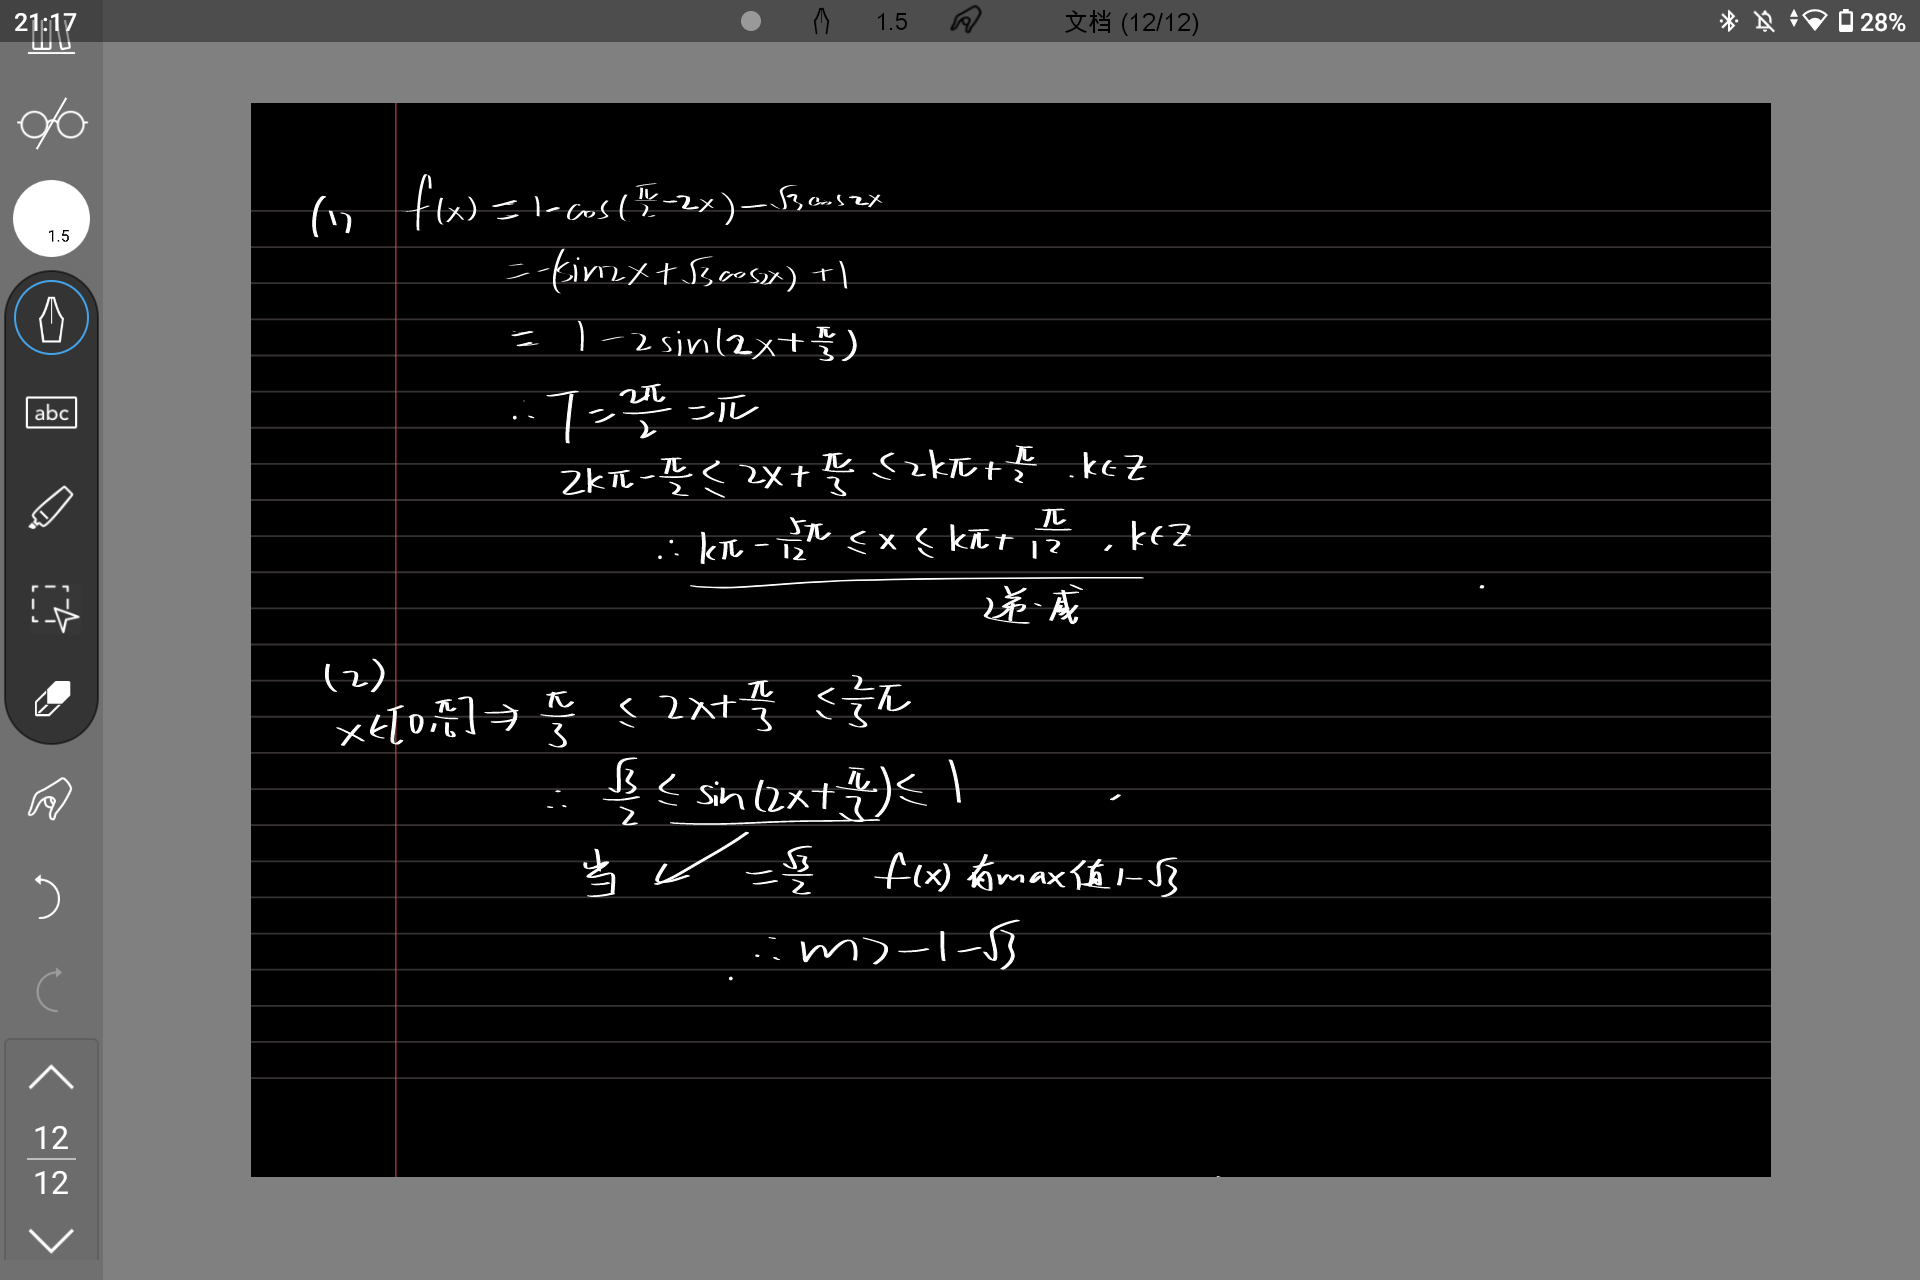 21:17
1.5
文档 (12/12)
28%
1.5
abc
12
12
(1) f(x) = 1-cos(π/2-2x)-√3cos2x
=-(sin2x+√3cos2x)+1
= 1-2sin(2x+π/3)
∴T=2π/2=π
2kπ-π/2≤2x+π/3≤2kπ+π/2.k∈Z
∴kπ-5/12π≤x≤kπ+π/12,k∈Z
递减
(2)
x∈[0,π/6]⇒π/3≤2x+π/3≤2/3π
∴√3/2≤sin(2x+π/3)≤1
当↙=√3/2 f(x)有max值1-√3
∴m>-1-√3